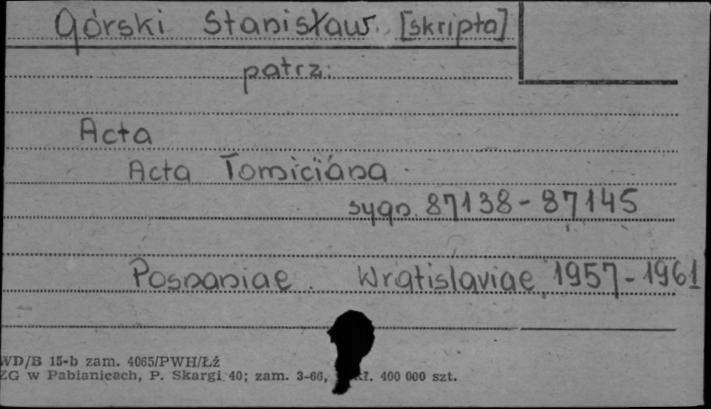 Górski Stanisław. [skripta]
patrz:
Acta
Acta Tomiciana
sygn. 87138-87145
Posnaniae. Wratislaviae, 1957-1961
WD/B 15-b zam. 4065/PWH/Łź
ZG w Pabianicach, P. Skargi 40; zam. 3-66, 400 000 szt.